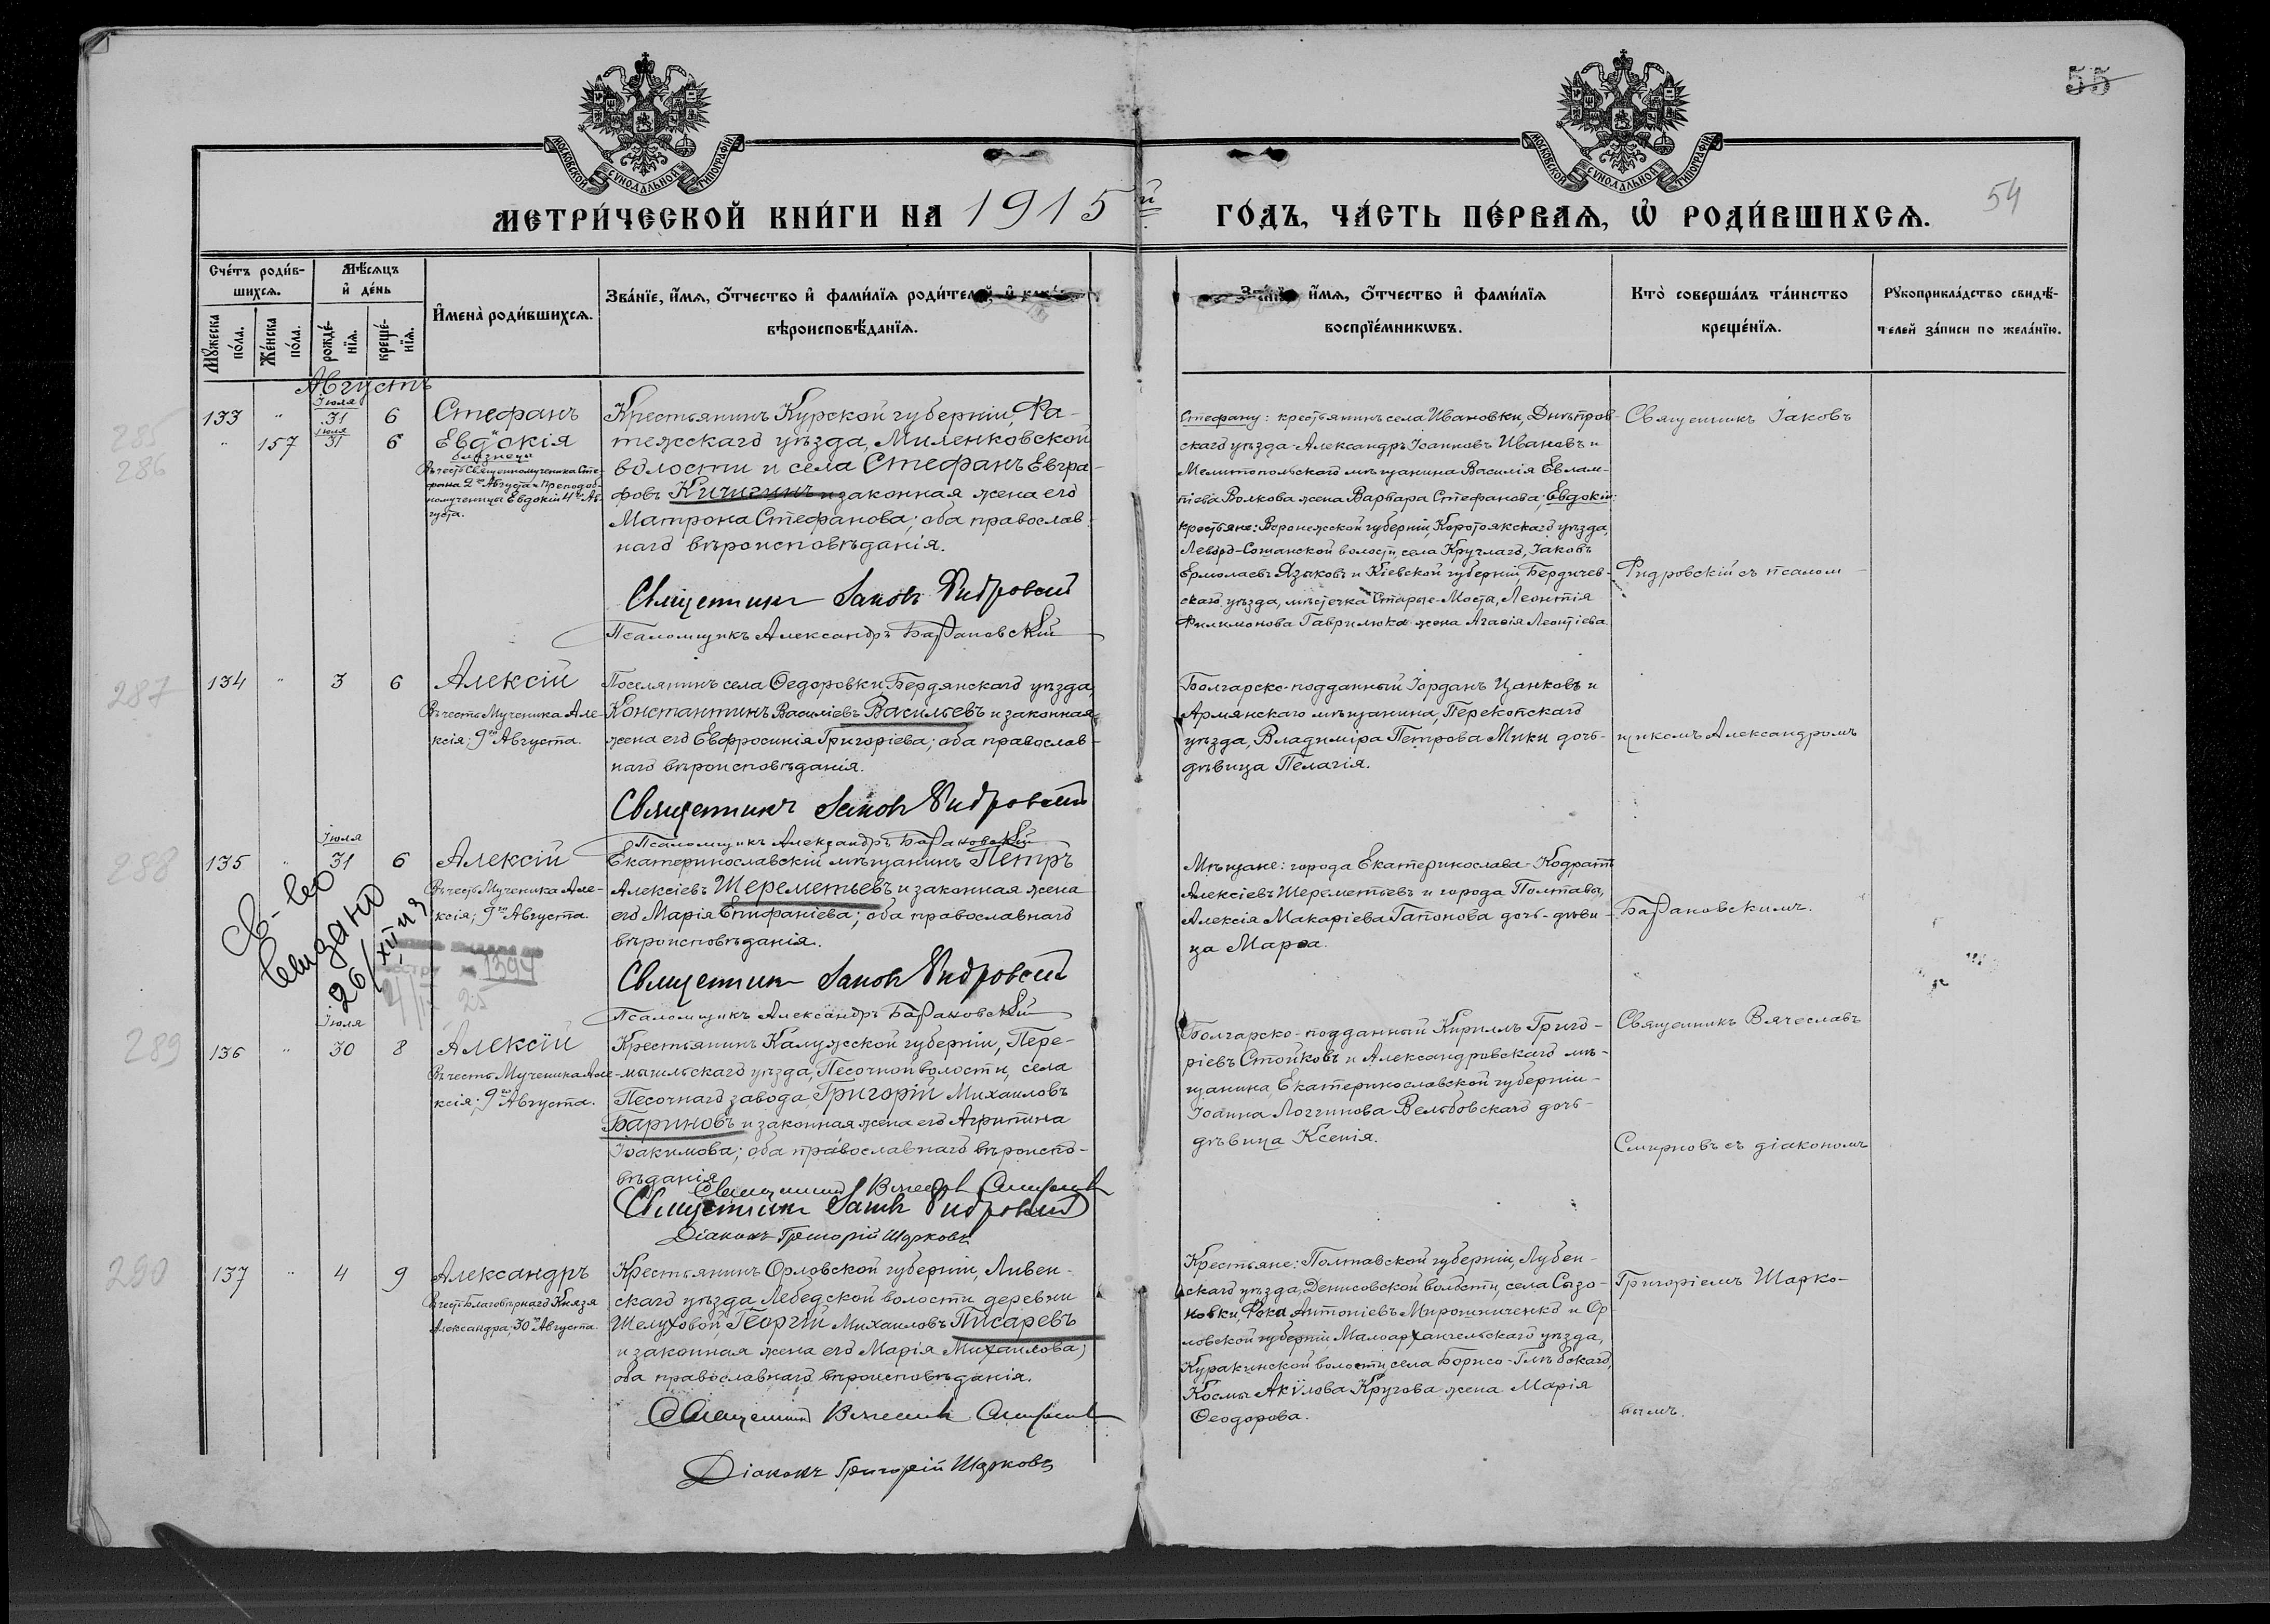 55
54
МОСКОВСКОЙ СѴНОДАЛЬНОЙ ТИПОГРАФІИ
МОСКОВСКОЙ СѴНОДАЛЬНОЙ ТИПОГРАФІИ
МЕТРИ́ЧЕСКОЙ КНИ́ГИ НА 1915й ГО́ДЪ, ЧА́СТЬ ПЕ́РВАѦ, Ѡ҆ РОДИ́ВШИХСѦ.
Сче́тъ роди́в-
шихсѧ.
Мꙋ́жеска по́ла.
Же́нска по́ла.
Мѣ́сѧцъ
и҆ де́нь
рожде́-
нїѧ.
креще́-
нїѧ.
И҆мена̀ роди́вшихсѧ.
Зва́нїе, и҆́мѧ, о҆́тчество и҆ фами́лїѧ роди́телей, и҆
вѣроисповѣ́данїѧ.
Зва́нїе, и҆́мѧ, о҆́тчество и҆ фами́лїѧ
воспрїе́мникѡвъ.
Кто̀ соверша́лъ та́инство
креще́нїѧ.
Рꙋкоприкла́дство свидѣ́-
телей за́писи по жела́нїю.
Августъ
285
286
133 " Іюля 31 6 Стефанъ
" 157 Іюля 31 6 и Евдокія
близнецы
Въ честь Священномученика Сте-
фана 2го Августа и Преподоб-
номученицы Евдокіи 4го Ав-
густа.
Крестьянинъ Курской губерніи, Фа-
тежскаго уѣзда, Миленковской
волости и села Стефанъ Евгра-
фовъ Кичигинъ и законная жена его
Матрона Стефанова; оба православ-
наго вѣроисповѣданія.
Священникъ Іаковъ Фидровскій
Псаломщикъ Александръ Барановскій
Стефану: крестьянинъ села Ивановки, Днѣпров-
скаго уѣзда Александръ Іоанновъ Ивановъ и
Мелитопольскаго мѣщанина Василія Евлам-
піева Волкова жена Варвара Стефанова; Евдокіи:
крестьяне: Воронежской губерніи, Коротоякскаго уѣзда,
волости, села Круглаго, Іаковъ
Ермолаевъ Языковъ и Кіевской губерніи, Бердичев-
скаго уѣзда, мѣстечка Старые-Мосты, Леонтія
Филимонова Гаврилюка жена Агафія Леонтіева
Священникъ Іаковъ
Фидровскій съ псалом-
287
134 " 3 6 Алексій
Въ честь Мученика Але-
ксія; 9го Августа.
Поселянинъ села Ѳедоровки, Бердянскаго уѣзда,
Константинъ Василіевъ Васильевъ и законная
жена его Евфросинія Григоріева; оба православ-
наго вѣроисповѣданія.
Священникъ Іаковъ Фидровскій
Псаломщикъ Александръ Барановскій
Болгарско-подданный Іорданъ Цанковъ и
Армянскаго мѣщанина, Перекопскаго
уѣзда, Владиміра Петрова Мики дочь-
дѣвица Пелагія.
щикомъ Александромъ
288
135 " Іюля 31 6 Алексій
Въ честь Мученика Але-
ксія; 9го Августа.
Св-во
выдано
26/XII
1394
25
Екатеринославскій мѣщанинъ Петръ
Алексіевъ Шереметьевъ и законная жена
его Марія Епифаніева; оба православнаго
вѣроисповѣданія.
Священникъ Іаковъ Фидровскій
Псаломщикъ Александръ Барановскій
Мѣщане: города Екатеринослава - Кодратъ
Алексіевъ Шереметьевъ и города Полтавы,
Алексія Макаріева Гапонова дочь-дѣви-
ца Марѳа.
Барановскимъ.
289
136 " Іюля 30 8 Алексій
Въ честь Мученика Але-
ксія; 9го Августа.
Крестьянинъ Калужской губерніи, Пере-
мышльскаго уѣзда, Песочной волости, села
Песочнаго завода, Григорій Михаиловъ
Бариновъ и законная жена его Агрипина
Іоакимова; оба православнаго вѣроиспо-
вѣданія.
Священникъ Вячеславъ Смирновъ
Священникъ Іаковъ Фидровскій
Діаконъ Григорій Шарковъ
Болгарско-подданный Кириллъ Григо-
ріевъ Стойковъ и Александровскаго мѣ-
щанина, Екатеринославской губерніи-
Іоанна Логгинова Вельбовскаго дочь-
дѣвица Ксенія.
Священникъ Вячеславъ
Смирновъ съ діакономъ
290
137 " 4 9 Александръ
Въ честь Благовѣрнаго Князя
Александра; 30го Августа.
Крестьянинъ Орловской губерніи, Ливен-
скаго уѣзда Лебедской волости деревни
Шелуховой, Георгій Михаиловъ Писаревъ
и законная жена его Марія Михаилова;
оба православнаго вѣроисповѣданія.
Священникъ Вячеславъ Смирновъ
Діаконъ Григорій Шарковъ
Крестьяне: Полтавской губерніи, Лубен-
скаго уѣзда, Денисовской волости, села Сазо-
новки, Фока Антоніевъ Мирошниченко и Ор-
ловской губерніи Малоархангельскаго уѣзда,
Куракинской волости, села Борисо-Глѣбскаго,
Космы Акѵлова Кругова жена Марія
Ѳеодорова.
Григоріемъ Шарко-
вымъ.